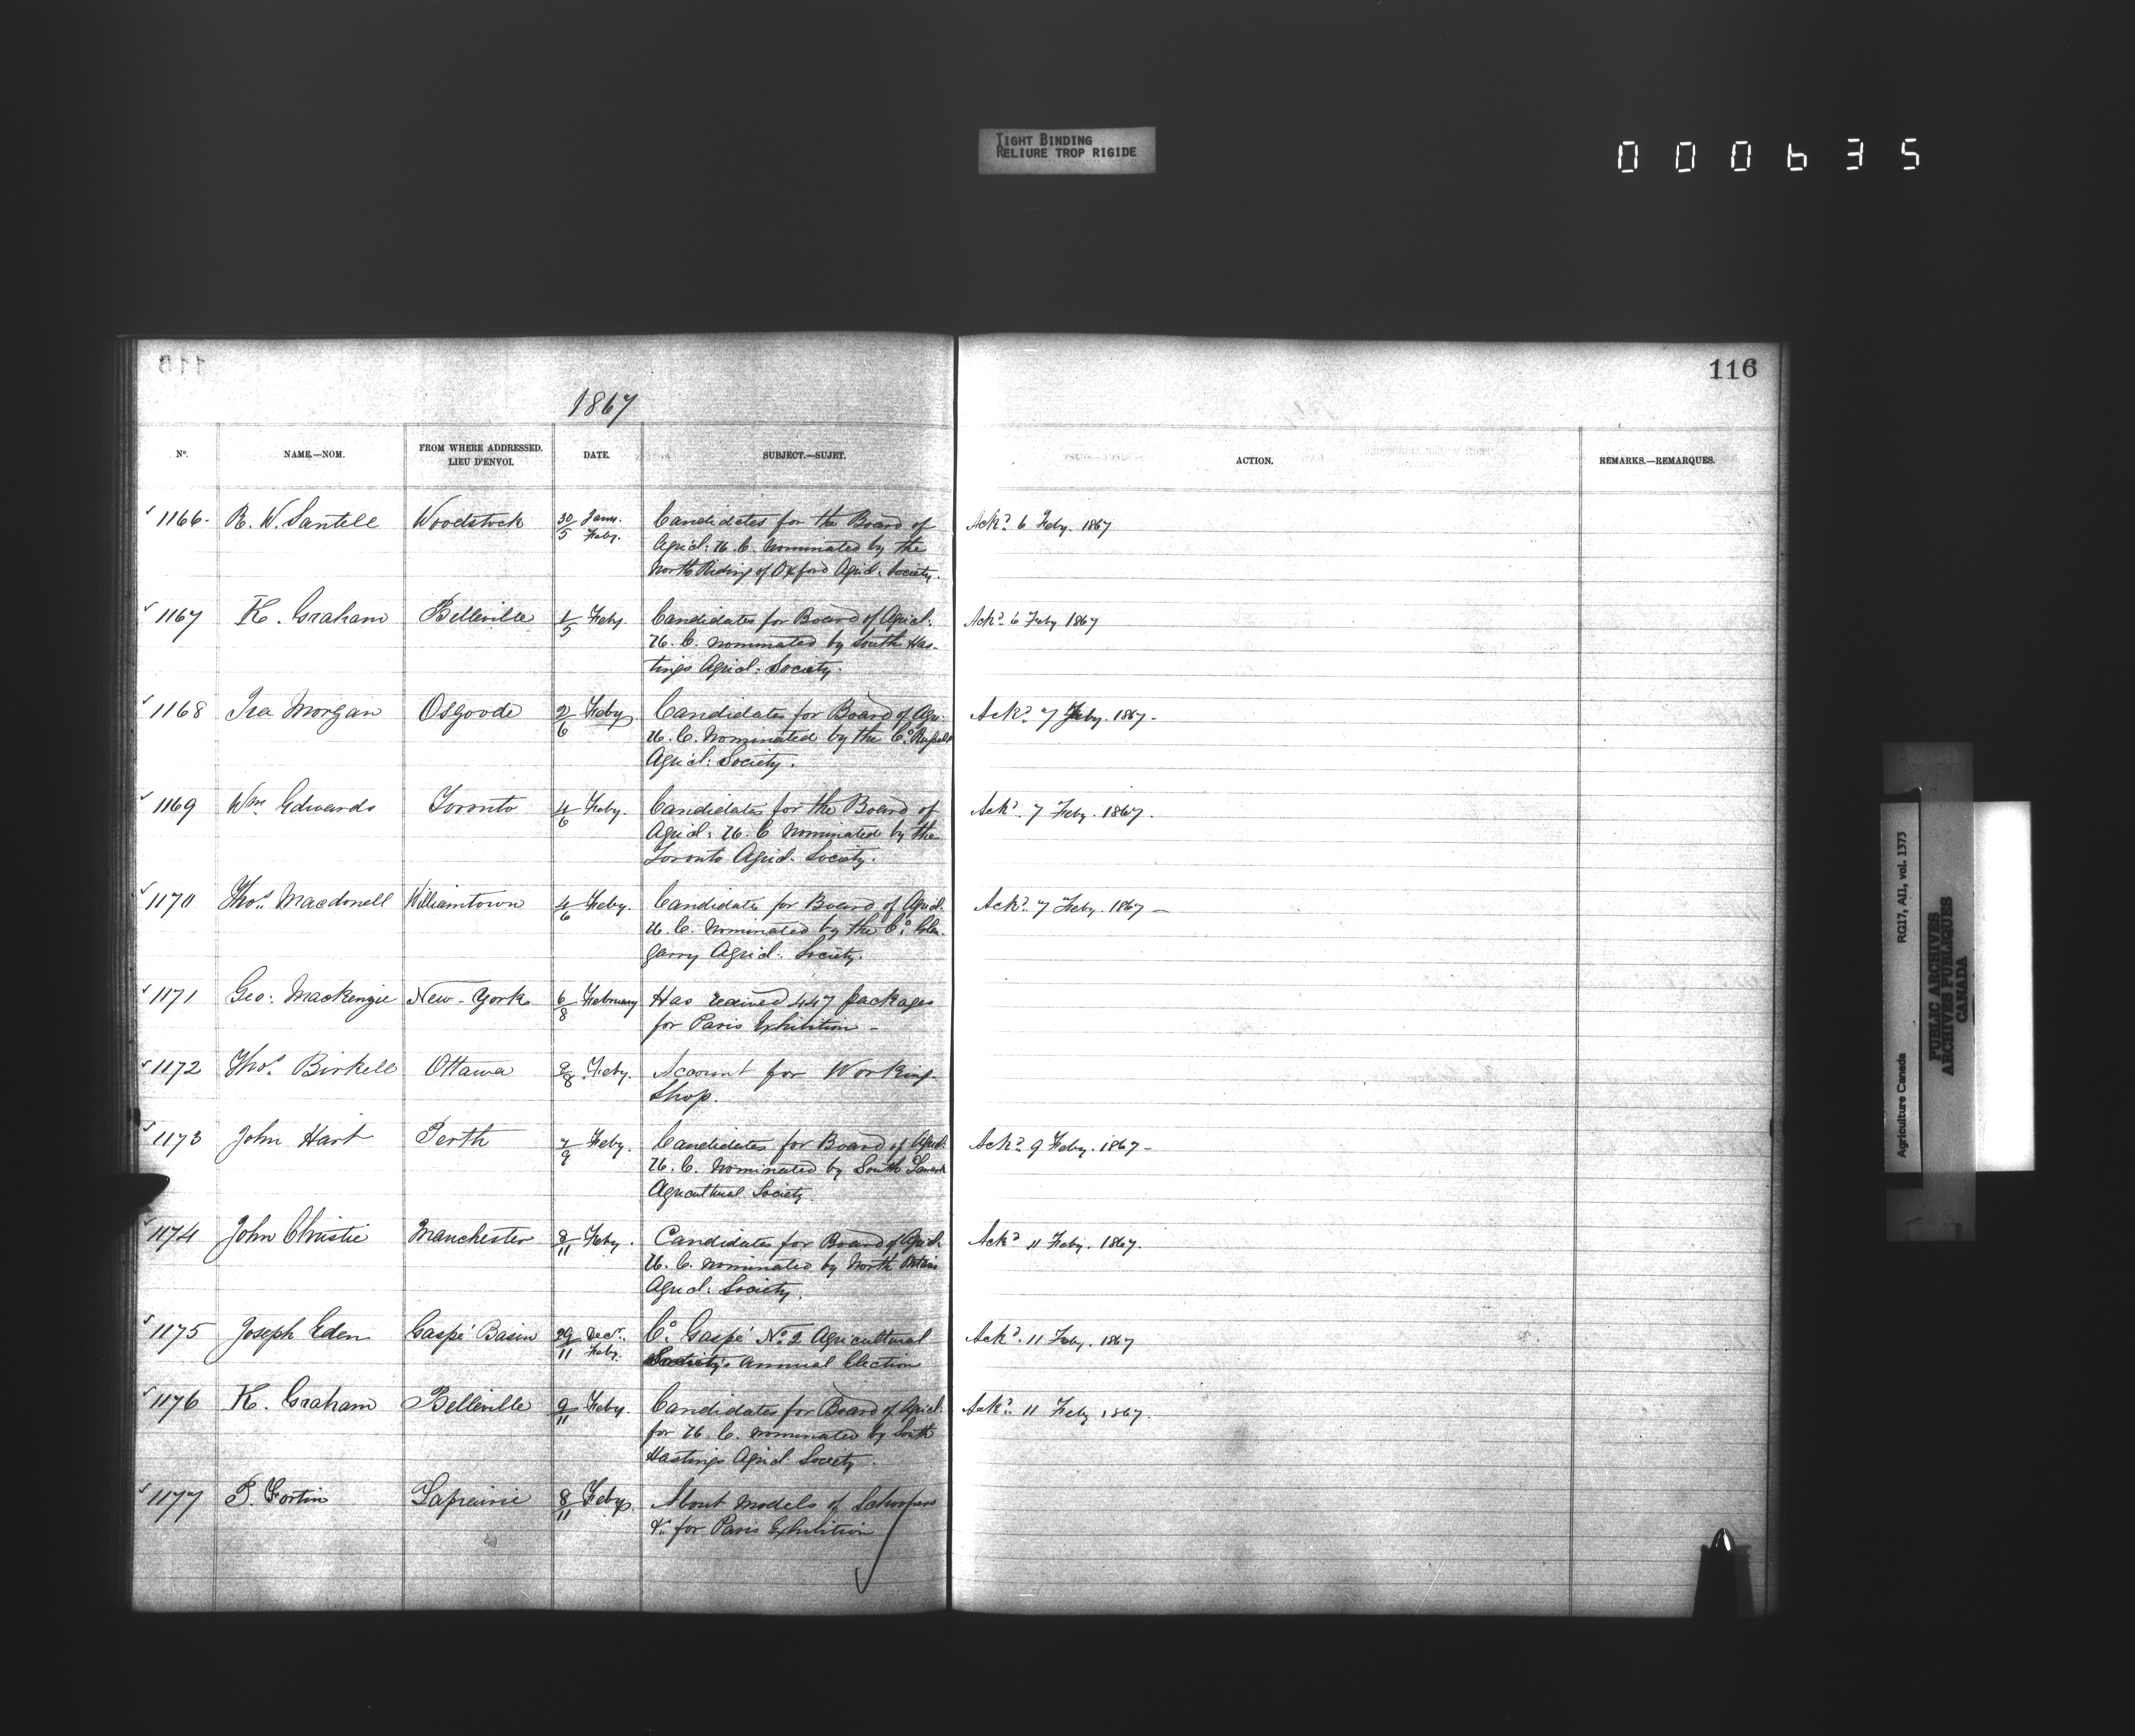 TIGHT BINDING
RELIURE TROP RIGIDE
000635
116
1867
No. NAME.—NOM. FROM WHERE ADDRESSED. LIEU D'ENVOI. DATE. SUBJECT.—SUJET. ACTION. REMARKS.—REMARQUES.
1166. R. W. Sawtell Woodstock 30/5 Jany. Feby. Candidates for the Board of Ackd. 6 Feby. 1867
Agricl: U. C. nominated by the
North Riding of Oxford Agricl. Society.
1167 K. Graham Belleville 1/5 Feby. Candidates for Board of Agricl. Ackd. 6 Feby 1867
U. C. nominated by South Has-
tings Agricl: Society.
1168 Ira Morgan Osgoode 2/6 Feby Candidates for Board of Agri. Ackd. 7 Feby. 1867-
U. C. nominated by the Co. Russell
Agricl: Society.
1169 Wm. Edwards Toronto 4/6 Feby. Candidates for the Board of Ackd. 7 Feby. 1867.
Agricl: U. C nominated by the
Toronto Agricl. Society.
1170 Thos. Macdonell Williamtown 4/6 Feby. Candidates for Board of Agricl. Ackd. 7 Feby. 1867—
U. C. nominated by the Co. Glen-
garry Agricl: Society.
1171 Geo: Mackenzie New-York 6/8 February Has received 447 packages
for Paris Exhibition-
1172 Thos. Birkell Ottawa /8 Feby. Account for Working-
Shop.
1173 John Hart Perth 7/9 Feby. Candidates for Board of Agricl. Ackd. 9 Feby. 1867-
U. C. nominated by South Lanark
Agricultural Society.
1174 John Christie Manchester 8/11 Feby. Candidates for Board of Agricl. Ackd 11 Feby. 1867.
U. C. nominated by North Ontario
Agricl: Society.
1175 Joseph Eden Gaspé Basin 29/11 Decr. Feby. Co. Gaspé No. 2 Agricultural Ackd. 11 Feby. 1867
Society's annual Election
1176 K. Graham Belleville 9/11 Feby. Candidates for Board of Agricl. Ackd. 11 Feby 1867.
for U. C. nominated by South
Hastings Agricl. Society.
1177 P. Fortin Laprairie 8/11 Feby. About models of Schooners
&c. for Paris Exhibition
Agriculture Canada RG17, AII, vol. 1373
PUBLIC ARCHIVES
ARCHIVES PUBLIQUES
CANADA